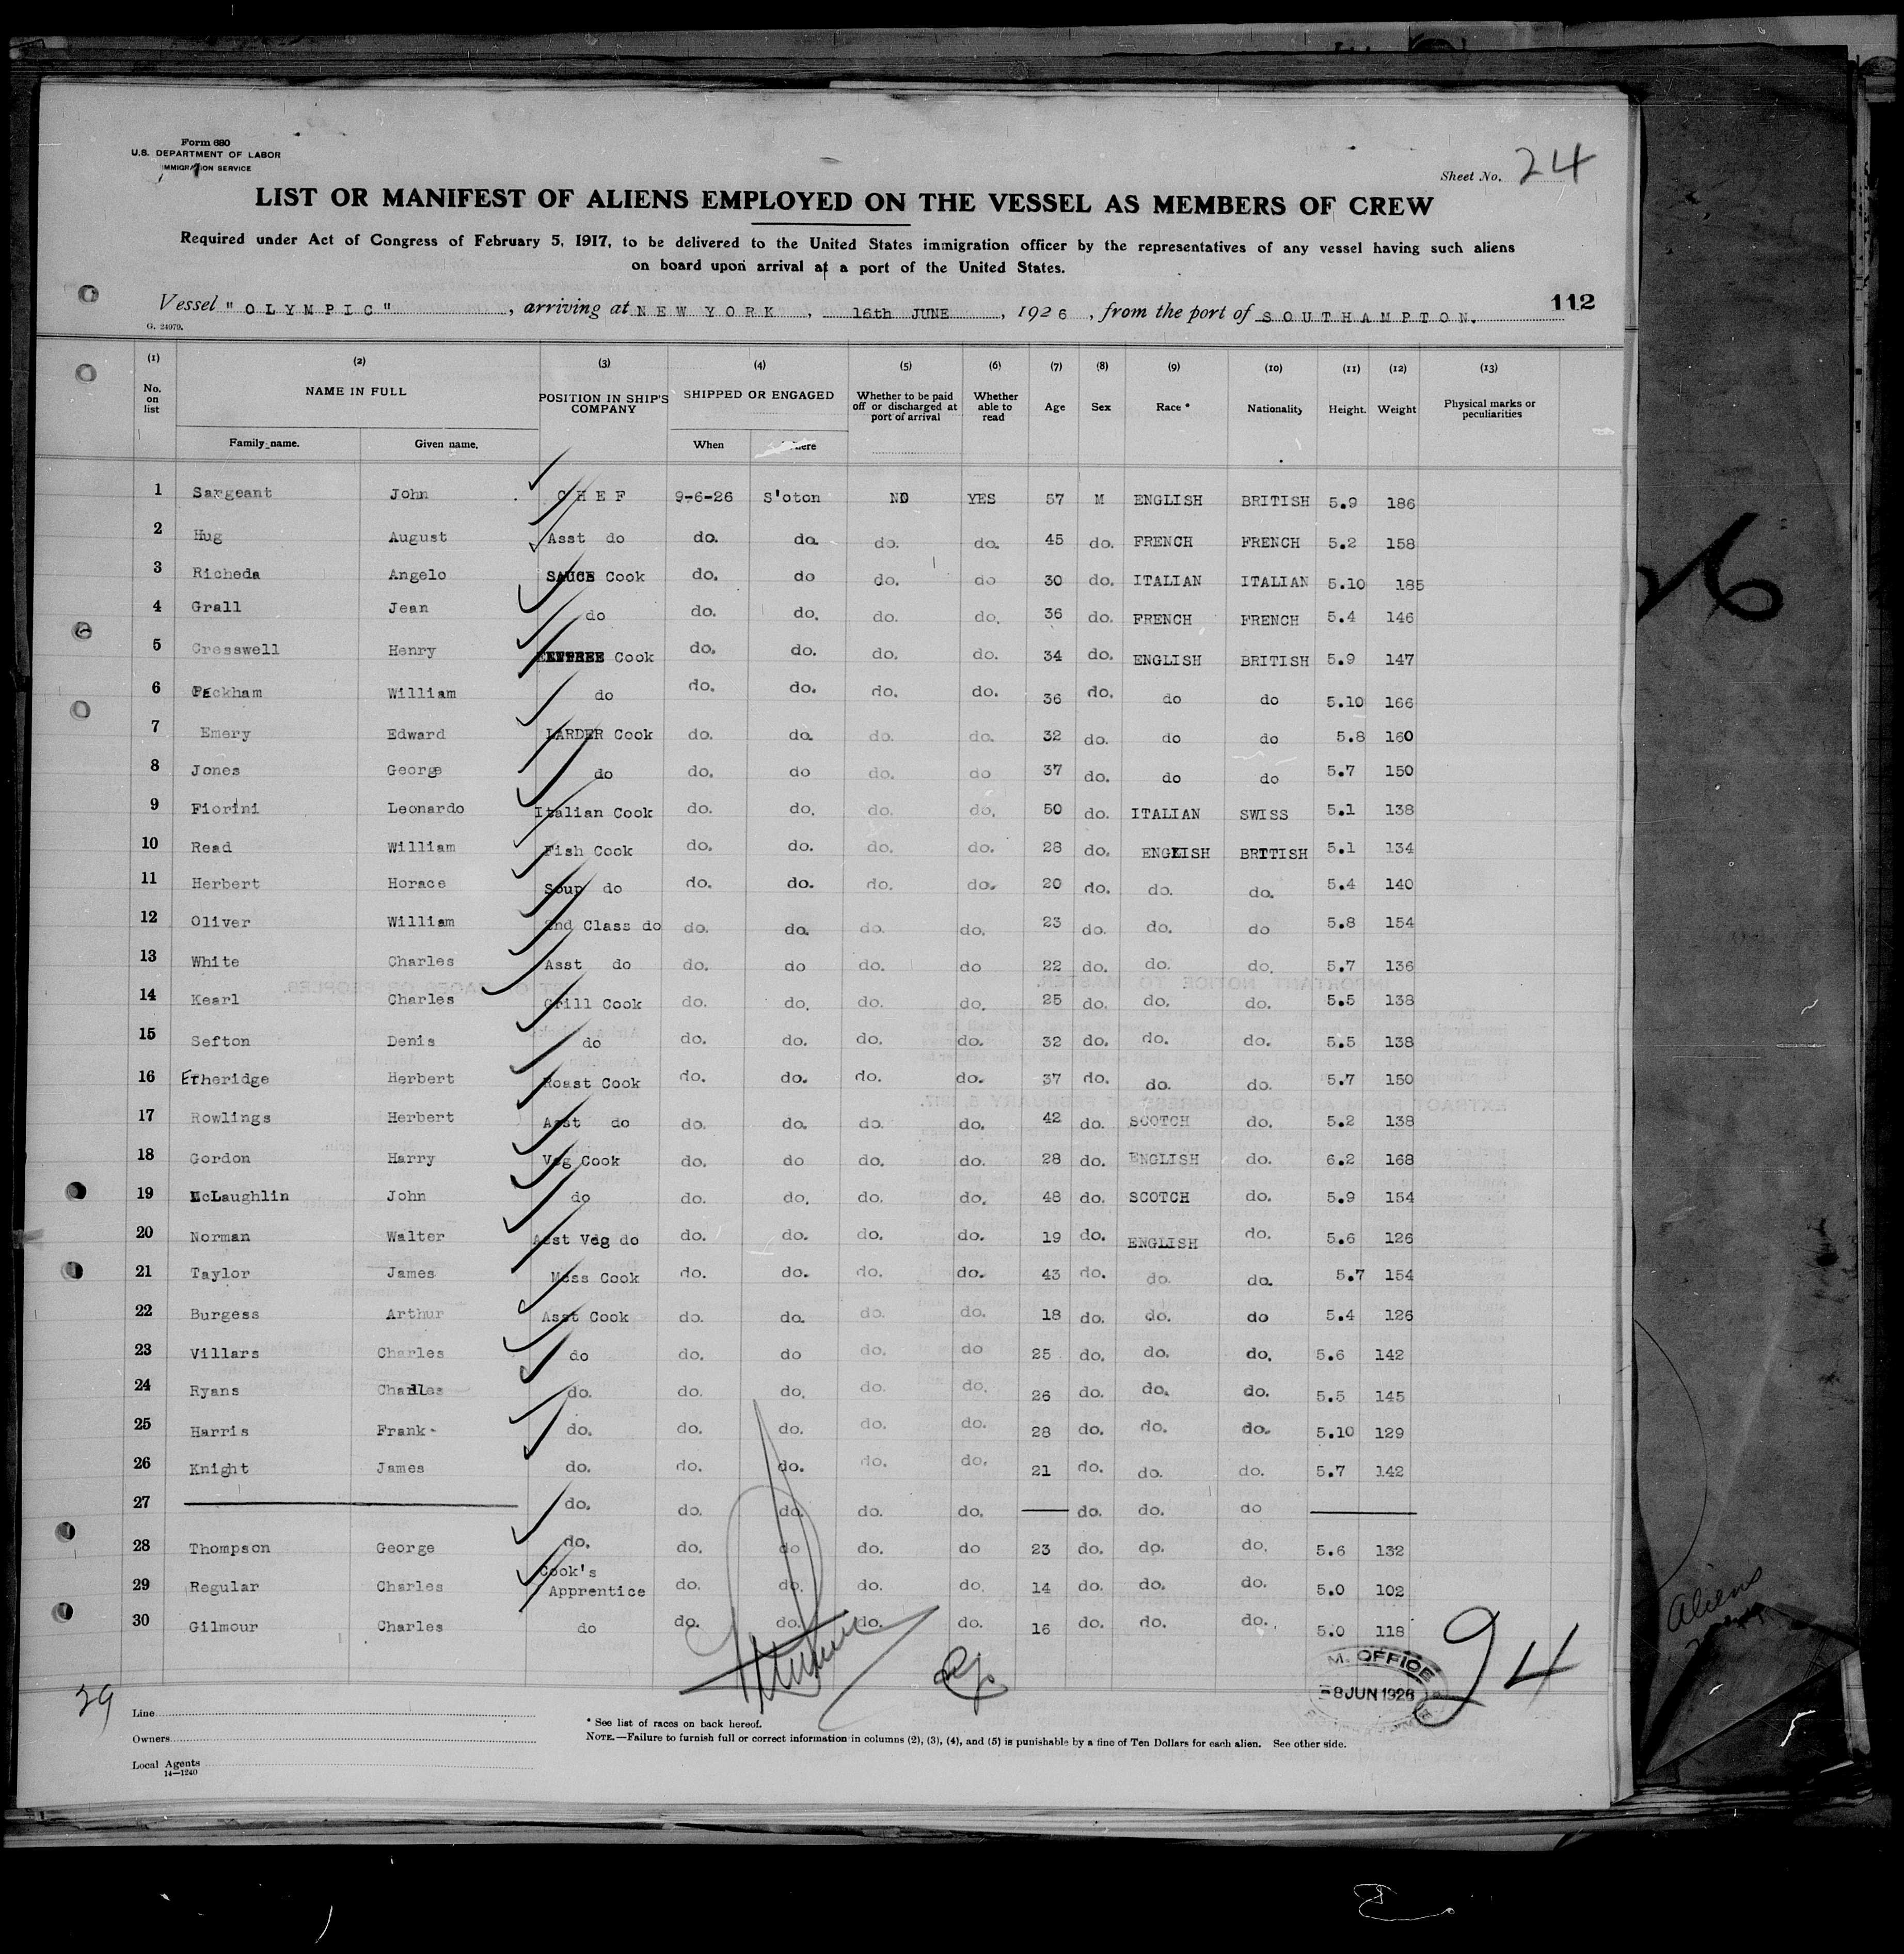 Form 680
U.S. DEPARTMENT OF LABOR
IMMIGRATION SERVICE
Sheet No. 24
LIST OR MANIFEST OF ALIENS EMPLOYED ON THE VESSEL AS MEMBERS OF CREW
Required under Act of Congress of February 5, 1917, to be delivered to the United States immigration officer by the representatives of any vessel having such aliens
on board upon arrival at a port of the United States.
Vessel "OLYMPIC", arriving at NEW YORK, 16th JUNE, 1926, from the port of SOUTHAMPTON.
112
G. 24979.
(1) (2) (3) (4) (5) (6) (7) (8) (9) (10) (11) (12) (13)
No. on list NAME IN FULL POSITION IN SHIP'S COMPANY SHIPPED OR ENGAGED Whether to be paid off or discharged at port of arrival Whether able to read Age Sex Race * Nationality Height. Weight Physical marks or peculiarities
Family name. Given name. When Where
1 Sargeant John CHEF 9-6-26 S'oton NO YES 57 M ENGLISH BRITISH 5.9 186
2 Hug August Asst do do. do. do. do. 45 do. FRENCH FRENCH 5.2 158
3 Richeda Angelo SAUCE Cook do. do do. do 30 do. ITALIAN ITALIAN 5.10 185
4 Grall Jean do do. do. do. do. 36 do. FRENCH FRENCH 5.4 146
5 Cresswell Henry Cook do. do. do. do. 34 do. ENGLISH BRITISH 5.9 147
6 Peckham William do do. do. do. do. 36 do. do do 5.10 166
7 Emery Edward LARDER Cook do. do. do. do. 32 do. do do 5.8 160
8 Jones George do do. do do. do 37 do. do do 5.7 150
9 Fiorini Leonardo Italian Cook do. do. do. do. 50 do. ITALIAN SWISS 5.1 138
10 Read William Fish Cook do. do. do. do. 28 do. ENGLISH BRITISH 5.1 134
11 Herbert Horace Soup do do. do. do. do. 20 do. do. do. 5.4 140
12 Oliver William 2nd Class do do. do. do. do. 23 do. do. do 5.8 154
13 White Charles Asst do do. do do. do 22 do. do. do. 5.7 136
14 Kearl Charles Grill Cook do. do. do. do. 25 do. do. do. 5.5 138
15 Sefton Denis do do. do. do. do. 32 do. do. do. 5.5 138
16 Etheridge Herbert Roast Cook do. do. do. do. 37 do. do. do. 5.7 150
17 Rowlings Herbert Asst do do. do. do. do. 42 do. SCOTCH do. 5.2 138
18 Gordon Harry Veg Cook do. do do. do. 28 do. ENGLISH do. 6.2 168
19 McLaughlin John do do. do. do. do. 48 do. SCOTCH do. 5.9 154
20 Norman Walter Asst Veg do do. do. do. do. 19 do. ENGLISH do. 5.6 126
21 Taylor James Mess Cook do. do. do. do. 43 do. do. do. 5.7 154
22 Burgess Arthur Asst Cook do. do. do. do. 18 do. do. do 5.4 126
23 Villars Charles do do. do do. do 25 do. do. do. 5.6 142
24 Ryans Charles do. do. do. do. do. 26 do. do. do. 5.5 145
25 Harris Frank do. do. do. do. do. 28 do. do. do. 5.10 129
26 Knight James do. do. do. do. do. 21 do. do. do. 5.7 142
27 do. do. do. do. do. do. do. do
28 Thompson George do. do. do do. do 23 do. do. do. 5.6 132
29 Regular Charles Cook's Apprentice do. do. do. do. 14 do. do. do. 5.0 102
30 Gilmour Charles do do. do. do. do. 16 do. do. do. 5.0 118
M. OFFICE
8 JUN 1926
94
29
Line
Owners
Local Agents
14—1240
* See list of races on back hereof.
NOTE.—Failure to furnish full or correct information in columns (2), (3), (4), and (5) is punishable by a fine of Ten Dollars for each alien. See other side.
26
Aliens